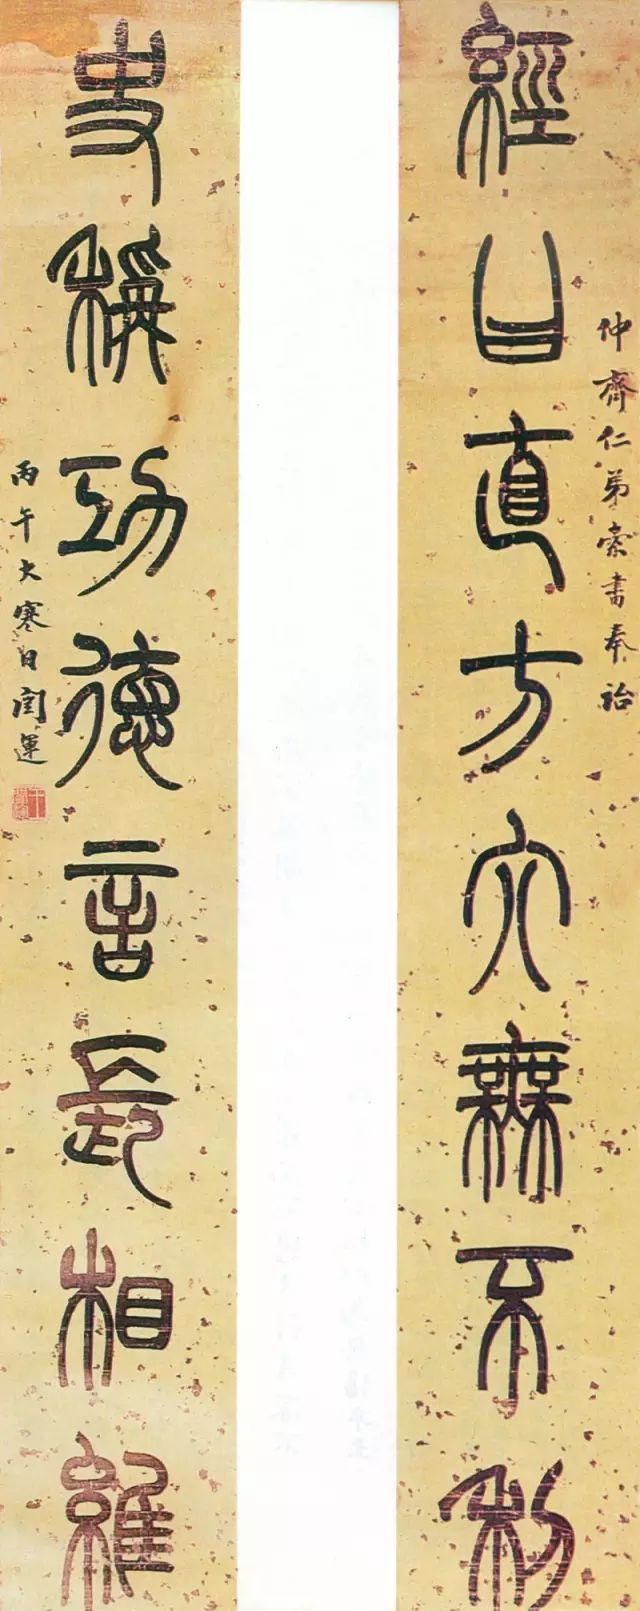 仲齊仁弟索書奉詒
經曰直方大無不利
史稱功德言長相維
丙午大寒日闓運